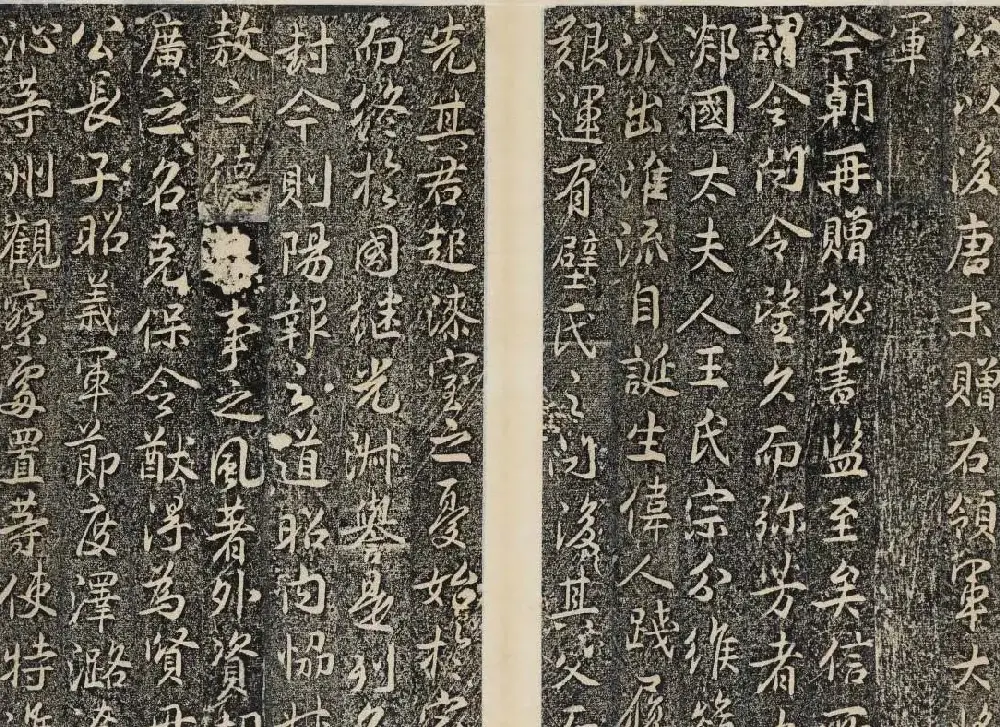 公以後唐末贈右領軍大
軍
今朝再贈秘書監至矣信
謂令問令望久而弥芳者
郯國太夫人王氏宗分維
派出淮流自誕生偉人踐履
艱運有壁氏之
後其父
先其君起漆室之憂始於
而終於國継光淋譽是列
封今則陽報之道昭内協
敖之德
事之風著外資
廣之名克保令猷得為賢
公長子昭義軍節度澤潞
沁等州觀察處置等使特